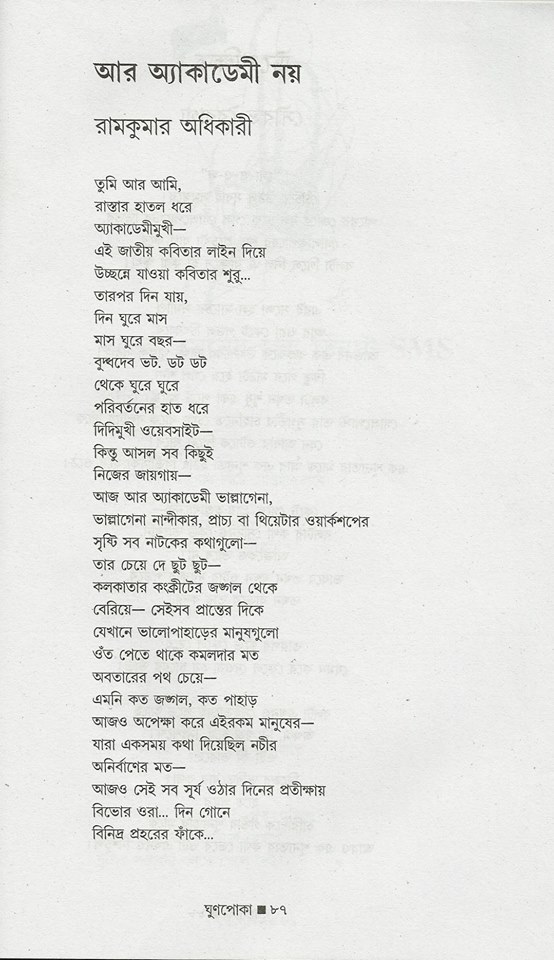 আর অ্যাকাডেমী নয়
রামকুমার অধিকারী
তুমি আর আমি,
রাস্তার হাতল ধরে
অ্যাকাডেমীমুখী—
এই জাতীয় কবিতার লাইন দিয়ে
উচ্ছন্নে যাওয়া কবিতার শুরু...
তারপর দিন যায়,
দিন ঘুরে মাস
মাস ঘুরে বছর—
বুদ্ধদেব ভট. ডট ডট
থেকে ঘুরে ঘুরে
পরিবর্তনের হাত ধরে
দিদিমুখী ওয়েবসাইট—
কিন্তু আসল সব কিছুই
নিজের জায়গায়—
আজ আর অ্যাকাডেমী ভাল্লাগেনা,
ভাল্লাগেনা নান্দীকার, প্রাচ্য বা থিয়েটার ওয়ার্কশপের
সৃষ্টি সব নাটকের কথাগুলো—
তার চেয়ে দে ছুট ছুট—
কলকাতার কংক্রীটের জঙ্গল থেকে
বেরিয়ে— সেইসব প্রান্তের দিকে
যেখানে ভালোপাহাড়ের মানুষগুলো
ওঁত পেতে থাকে কমলদার মত
অবতারের পথ চেয়ে—
এমনি কত জঙ্গল, কত পাহাড়
আজও অপেক্ষা করে এইরকম মানুষের—
যারা একসময় কথা দিয়েছিল নচীর
অনির্বাণের মত—
আজও সেই সব সূর্য ওঠার দিনের প্রতীক্ষায়
বিভোর ওরা... দিন গোনে
বিনিদ্র প্রহরের ফাঁকে...
ঘুণপোকা ■ ৮৭